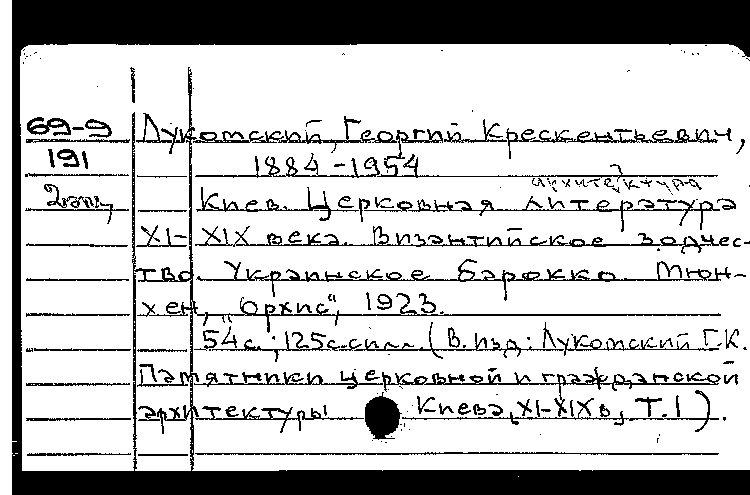 69-9 Лукомский, Георгий Крескентьевич,
191 1884-1954
2 экз, архитектура
Киев. Церковная литература
XI- XIX века. Византийское зодчес-
тво. Украинское барокко. Мюн-
хен, "Орхис", 1923.
54с.; 125с.илл. (В.изд: Лукомский Г.К.
Памятники церковной и гражданской
архитектуры Киева, XI-XIXв, Т.1).